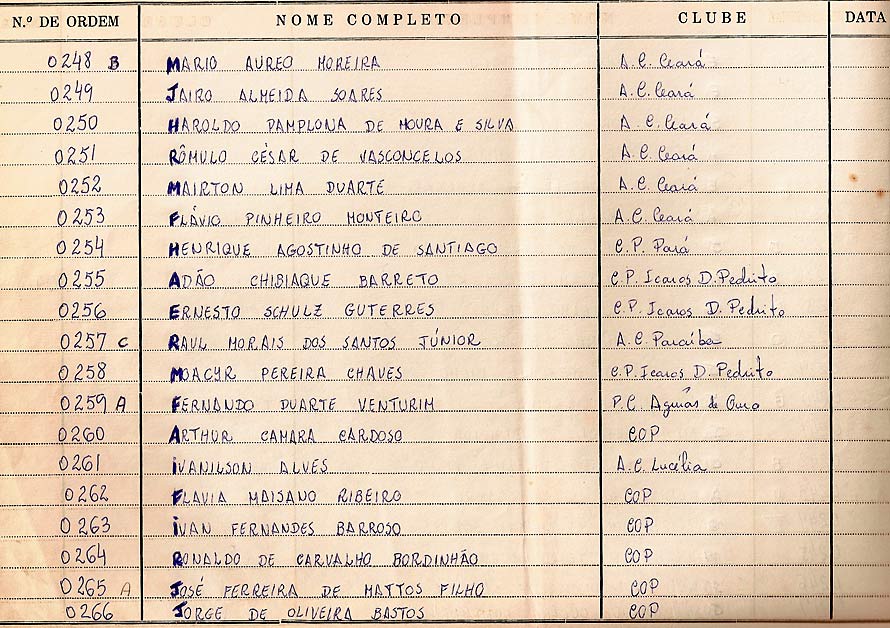 N.º DE ORDEM NOME COMPLETO CLUBE DATA
0248 B MARIO AUREO MOREIRA A.C. Ceará
0249 JAIRO ALMEIDA SOARES A.C. Ceará
0250 HAROLDO PAMPLONA DE MOURA E SILVA A.C. Ceará
0251 RÔMULO CÉSAR DE VASCONCELOS A.C. Ceará
0252 MAIRTON LIMA DUARTE A.C. Ceará
0253 FLÁVIO PINHEIRO MONTEIRO A.C. Ceará
0254 HENRIQUE AGOSTINHO DE SANTIAGO C.P. Pará
0255 ADÃO CHIBIAQUE BARRETO C.P. Icaros D. Pedrito
0256 ERNESTO SCHULZ GUTERRES C.P. Icaros D. Pedrito
0257 C RAUL MORAIS DOS SANTOS JÚNIOR A.C. Paraíba
0258 MOACYR PEREIRA CHAVES C.P. Icaros D. Pedrito
0259 A FERNANDO DUARTE VENTURIM P.C. Águias de Ouro
0260 ARTHUR CAMARA CARDOSO COP
0261 IVANILSON ALVES A.C. Lucélia
0262 FLAVIA MAISANO RIBEIRO COP
0263 IVAN FERNANDES BARROSO COP
0264 RONALDO DE CARVALHO BORDINHÃO COP
0265 A JOSÉ FERREIRA DE MATTOS FILHO COP
0266 JORGE DE OLIVEIRA BASTOS COP